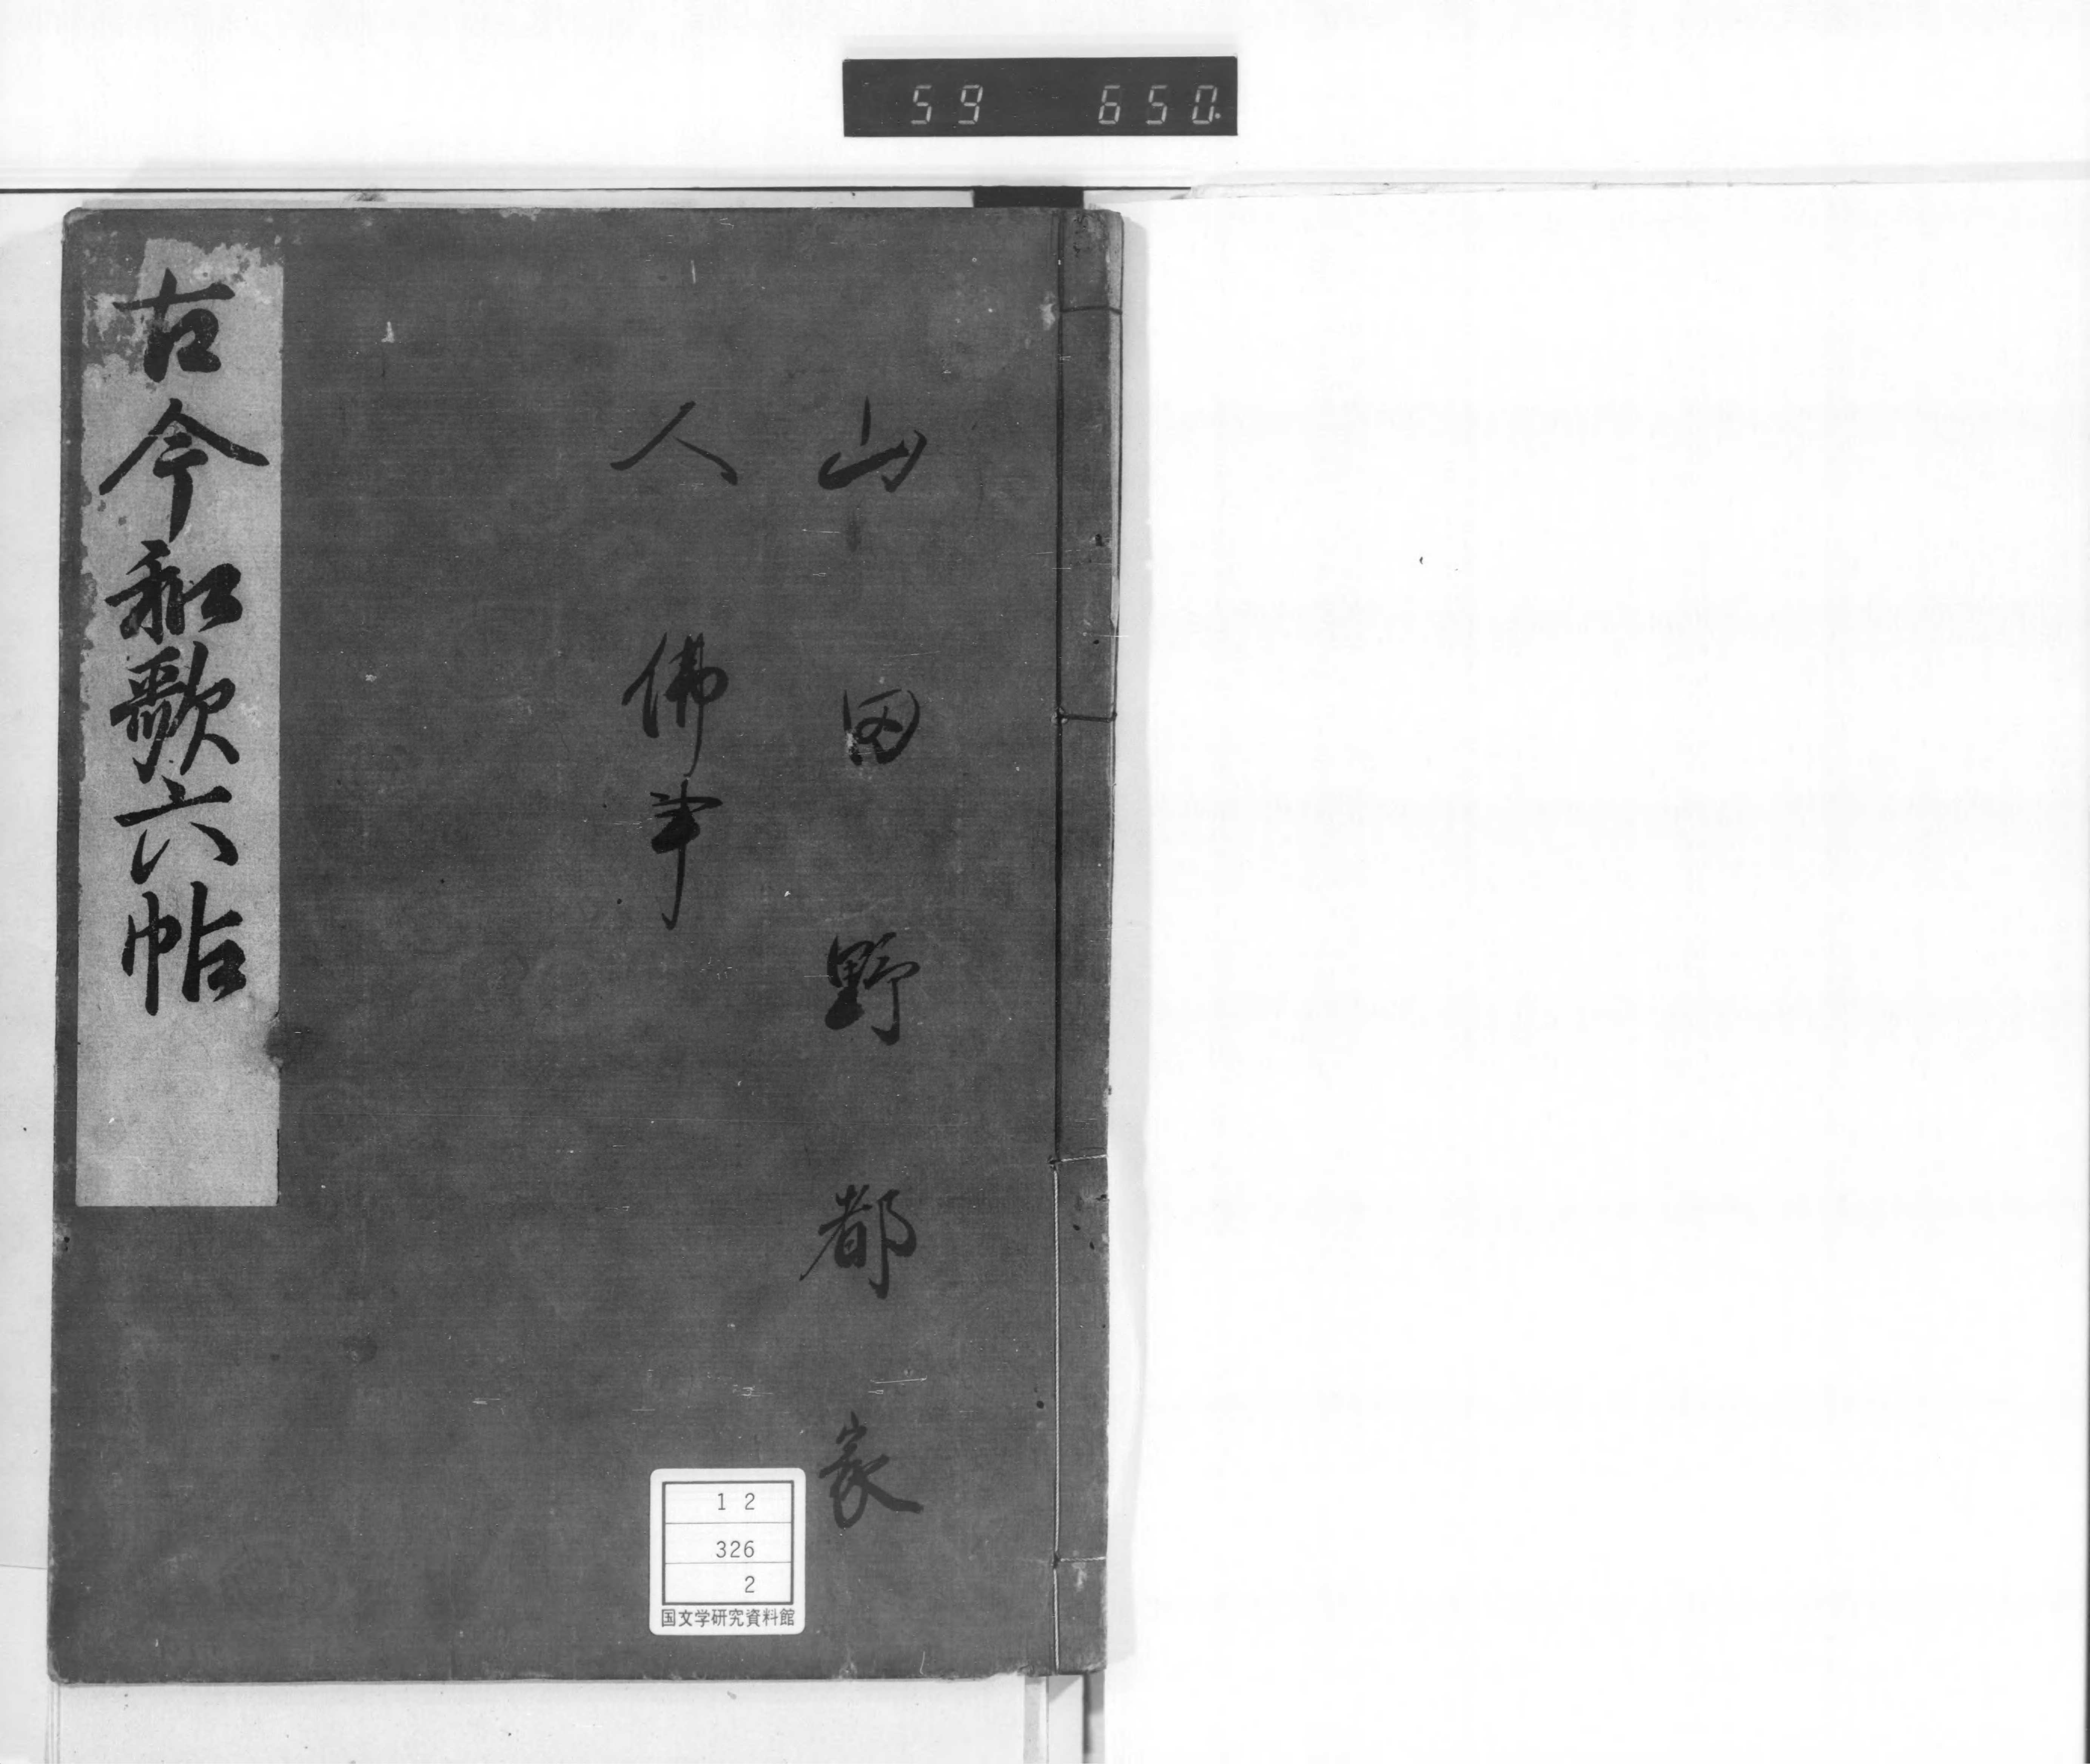 59 650.
山 田 野 都 家
人 佛事
古今和歌六帖
12
326
2
国文学研究資料館